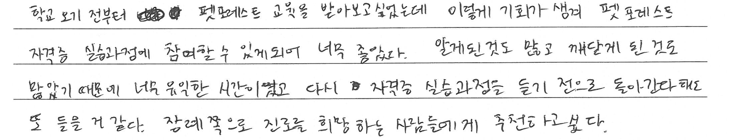 학교 오기 전부터 펫포레스트 교육을 받아보고싶었는데 이렇게 기회가 생겨 펫포레스트
자격증 실습과정에 참여할 수 있게되어 너무 좋았다. 알게된 것도 많고 깨닫게 된 것도
많았기 때문에 너무 유익한 시간이였고 다시 자격증 실습과정을 듣기 전으로 돌아간다해도
또 들을 거 같다. 장례쪽으로 진로를 희망하는 사람들에게 추천하고싶다.